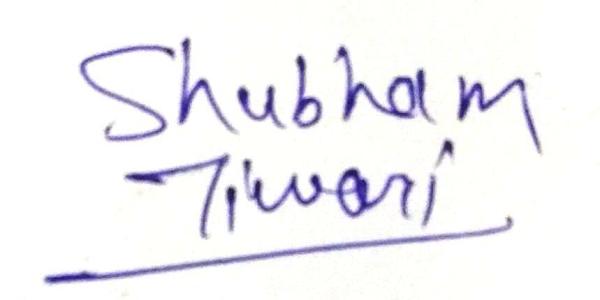 Shubham
Tiwari